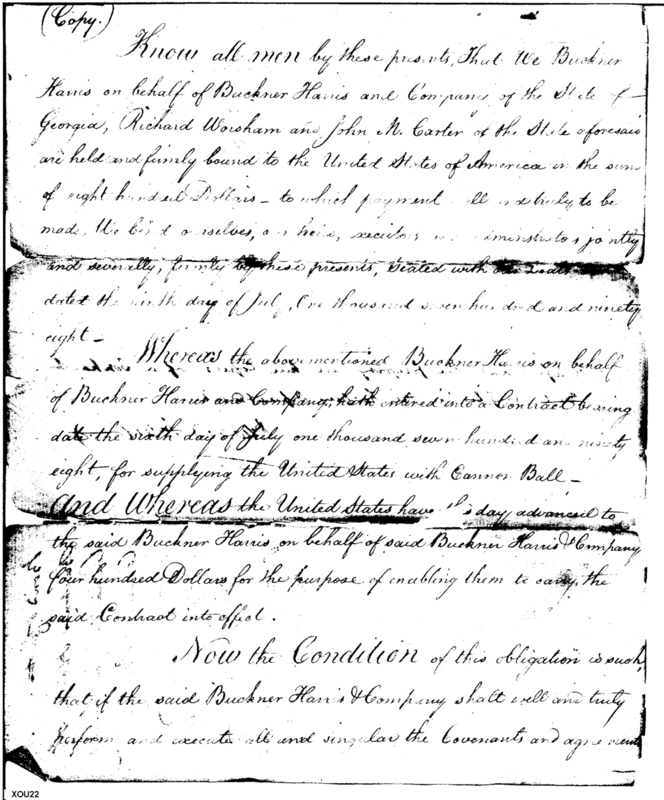 (Copy.)
Know all men by these presents, That We Buckner
Harris on behalf of Buckner Harris and Company of the State of
Georgia, Richard Worsham and John M. Carter of the State aforesaid
are held and firmly bound to the United States of America in the sum
of eight hundred Dollars – to which payment well and truly to be
made, We bind ourselves, our heirs, executors and administrators jointly
and severally, firmly by these presents, Sealed with our Seals
dated the ninth day of July, One thousand seven hundred and ninety
eight –
Whereas the above mentioned Buckner Harris on behalf
of Buckner Harris and Company, hath entered into a Contract bearing
date the sixth day of July one thousand seven hundred and ninety
eight, for supplying the United States with Cannon Ball –
And Whereas the United States have this day advanced to
the said Buckner Harris, on behalf of said Buckner Harris & Company
four hundred Dollars for the purpose of enabling them to carry the
said Contract into effect.
Now the Condition of this obligation is such,
that if the said Buckner Harris & Company shall well and truly
perform and execute all and singular the Covenants and agreements
XOU22